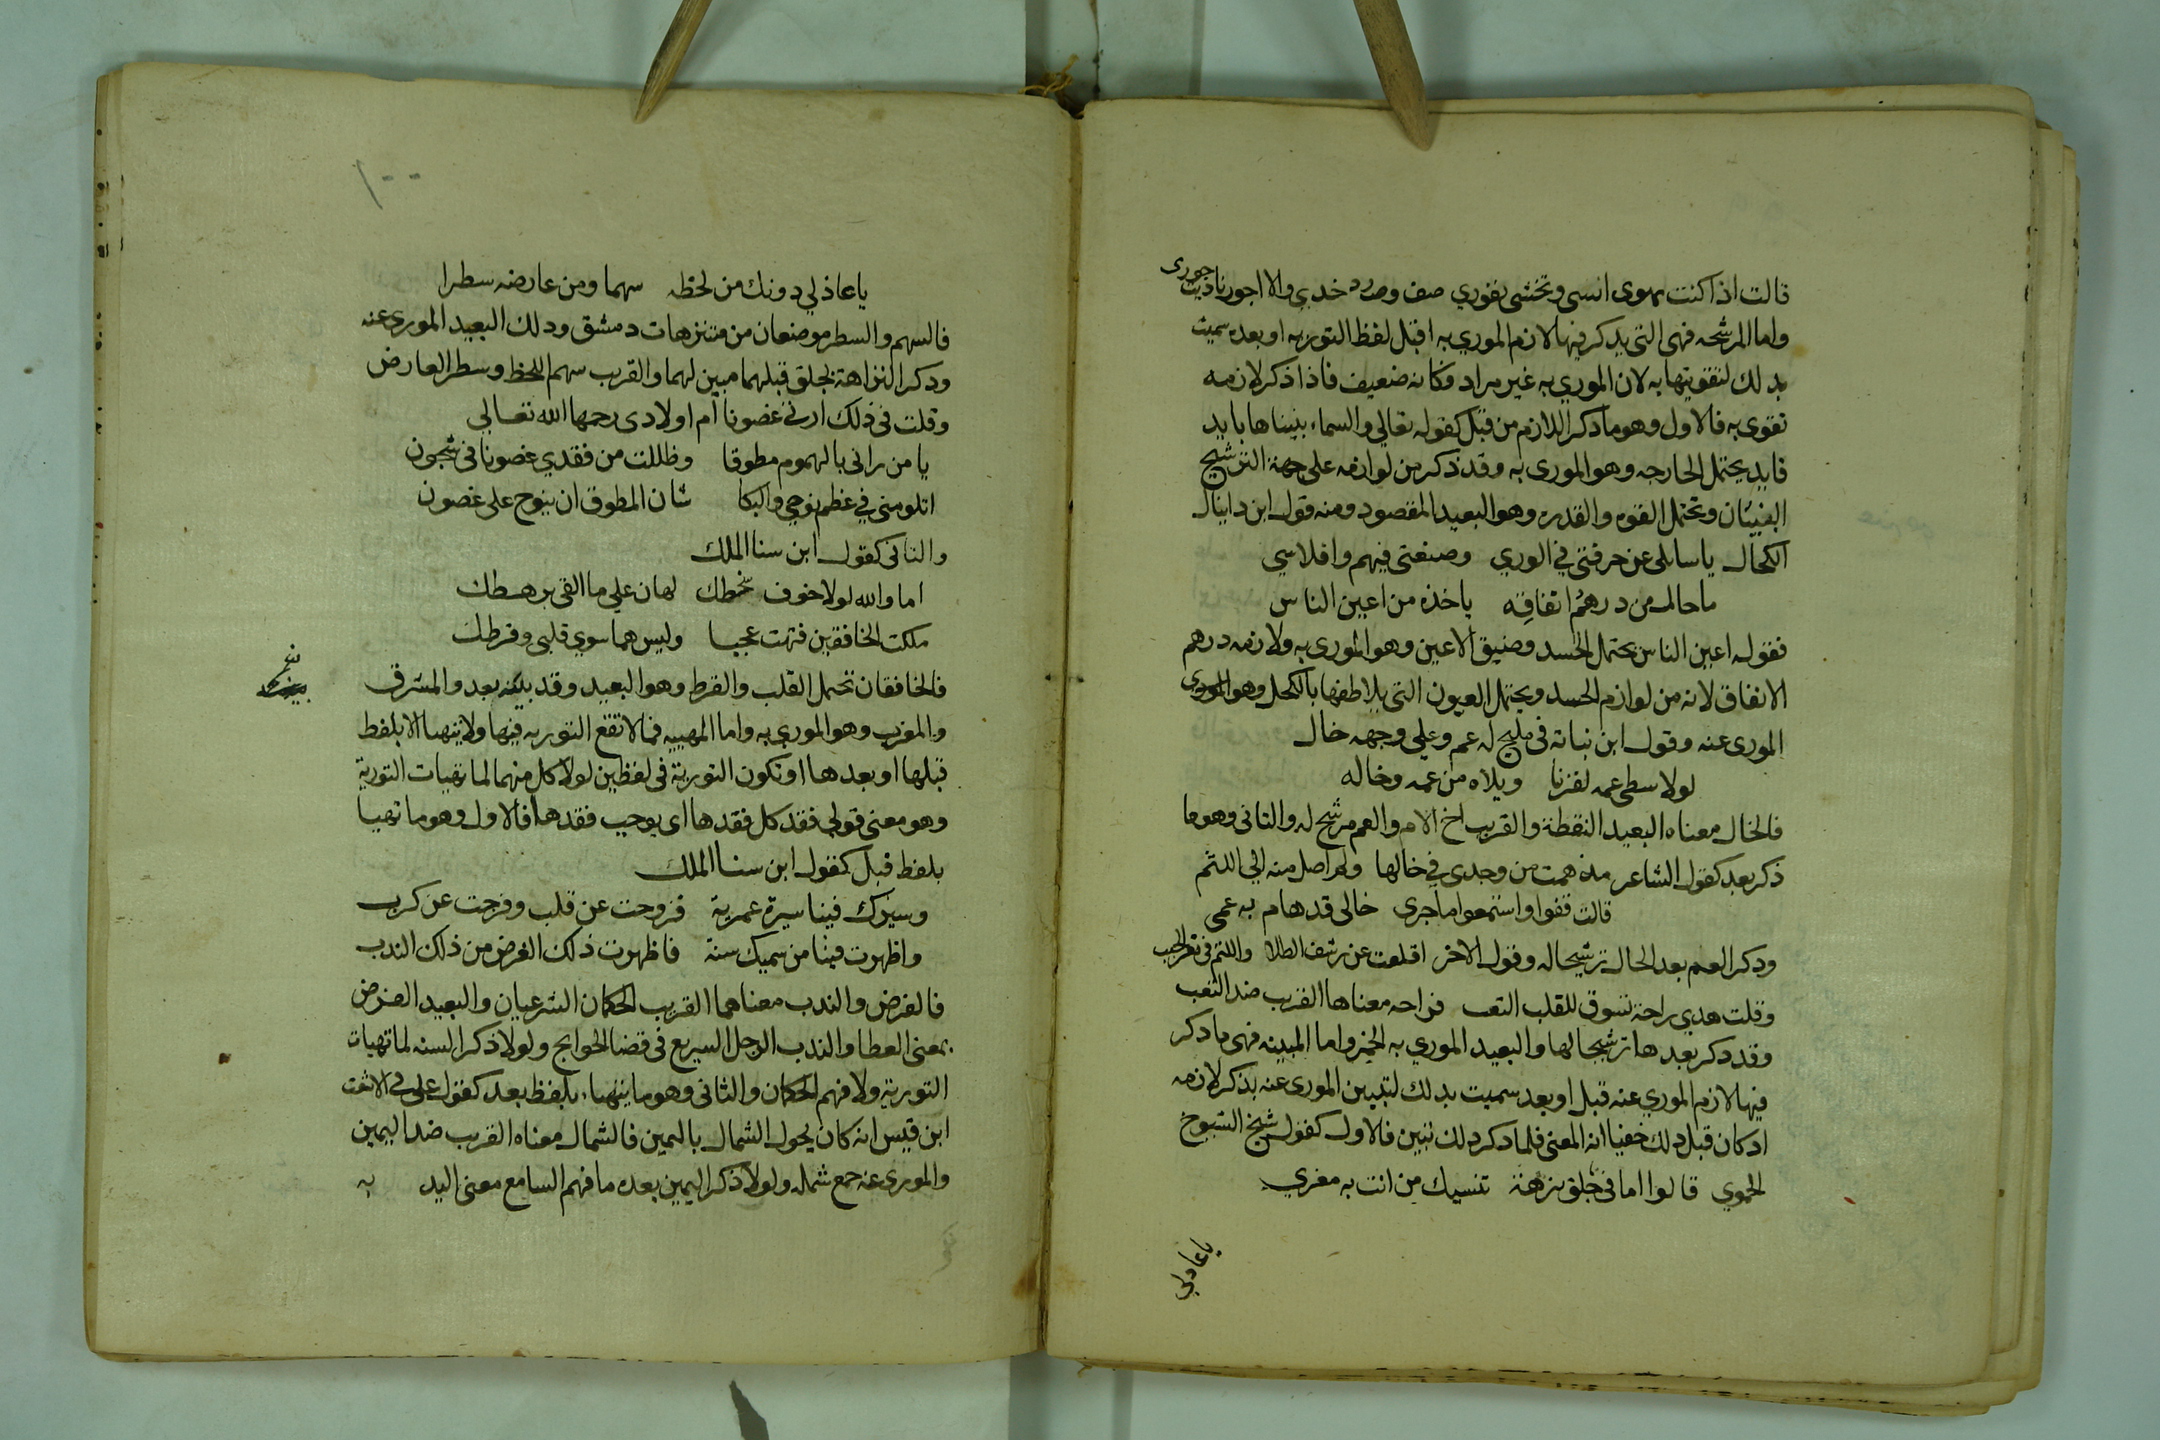 قالت اذا كنت تهوى انسي وتخشى نفوري صف ورد خدي والا اجور ناديت جوري
واما المرشحه فهي التي يذكر فيها لازم الموري به اقبل لفظ التوريه او بعده سميت
بذلك لتقويتها به لان الموري به غير مراد وكانه ضعيف فاذا ذكر لازمه
تقوى به فالاول وهو ما ذكر اللازم من قبل كقوله تعالي والسماء بنيناها بايد
فايد يحتمل الجارحه وهو المورى به وقد ذكر من لوازمه علي جهة الترشيح
البنيان وتحتمل القوه والقدره وهو البعيد المقصود ومنه قول ابن دانيال
الكحال يا سايلي عن حرفتي في الوري وصنعتي فيهم وافلاسي
ما حال من درهم انفاقه ياخذه من اعين الناس
فقوله اعين الناس يحتمل الحسد وضيق الاعين وهو الموري به ولازمه درهم
الانفاق لانه من لوازم الحسد ويحتمل العيون التي يلاطفها بالكحل وهو الموري
المورى عنه وقول ابن نباته في مليح له عم وعلي وجهه خال
لولا سطي عمه لفزنا ويلاه من عمه وخاله
فالخال معناه البعيد النقطة والقريب اخ الام والعم مرشح له والثاني وهو ما
ذكر بعد كقول الشاعر مذ همت من وجدي في خالها ولم اصل منه الي اللثم
قالت قفوا واستمعوا ما جرى خالي قد هام به عمي
وذكر العم بعد الخال ترشيحا له وقول الاخر اقلعت عن رشف الطلا واللثم في ثغر الحبب
وقلت هذي راحة تسوق للقلب التعب فراحه معناها القريب ضد التعب
وقد ذكر بعدها ترشيحا لها والبعيد الموري به الخمر واما المبينه فهي ما ذكر
فيها لازم الموري عنه قبل او بعد سميت بذلك لتبيين المورى عنه بذكر لازمه
اذ كان قبل ذلك خفيا انه المعنى فلما ذكر ذلك تبين فالاول كقول شيخ الشيوخ
الحموي قالوا اما في جلق نزهة تنسيك من انت به مغري
يا عاذلي
١٠٠
يا عاذلي دونك من لحظه سهما ومن عارضه سطرا
فالسهم والسطر موضعان من متنزهات دمشق وذلك البعيد المورى عنه
وذكر النزاهة بجلق قبلهما مبين لهما والقريب سهم اللحظ وسطر العارض
وقلت في ذلك ارثي غصونا ام اولادى رحمها الله تعالي
يا من رانى بالهموم مطوقا وظللت من فقدي غصونا في شجون
اتلومني في عظم نوحي والبكا شان المطوق ان ينوح على غصون
والثانى كقول ابن سنا الملك
اما والله لولا خوف سخطك لهان علي ما القى برهطك
ملكت الخافقين فتهت عجبا وليس هما سوي قلبي وقرطك
فالخافقان تحتمل القلب والقرط وهو البعيد وقد بينه بعد والمشرق
والمغرب وهو الموري به واما المهييه فما لا تقع التوريه فيها ولا يتهيا الا بلفظ
قبلها او بعدها او تكون التورية في لفظين لولا كل منهما لما تهيات التورية
وهو معنى قولي فقد كل فقدها اى يوجب فقدها فالاول وهو ما تهيا
بلفظ قبل كقول ابن سنا الملك
وسيرك فينا سيرة عمرية فروحت عن قلب وفرجت عن كرب
واظهرت فينا من سميك سنة فاظهرت ذلك الفرض من ذلك الندب
فالفرض والندب معناهما القريب الحكمان الشرعيان والبعيد الفرض
بمعنى العطا والندب الرجل السريع في قضا الحوايج ولولا ذكر السنه لما تهيات
التورية ولا فهم الحكمان والثانى وهو ما يتهياء بلفظ بعد كقول علي في الاشعث
ابن قيس انه كان يحوك الشمال باليمين فالشمال معناه القريب ضد اليمين
والمورى عنه جمع شمله ولولا ذكر اليمين بعده ما فهم السامع معنى اليد به